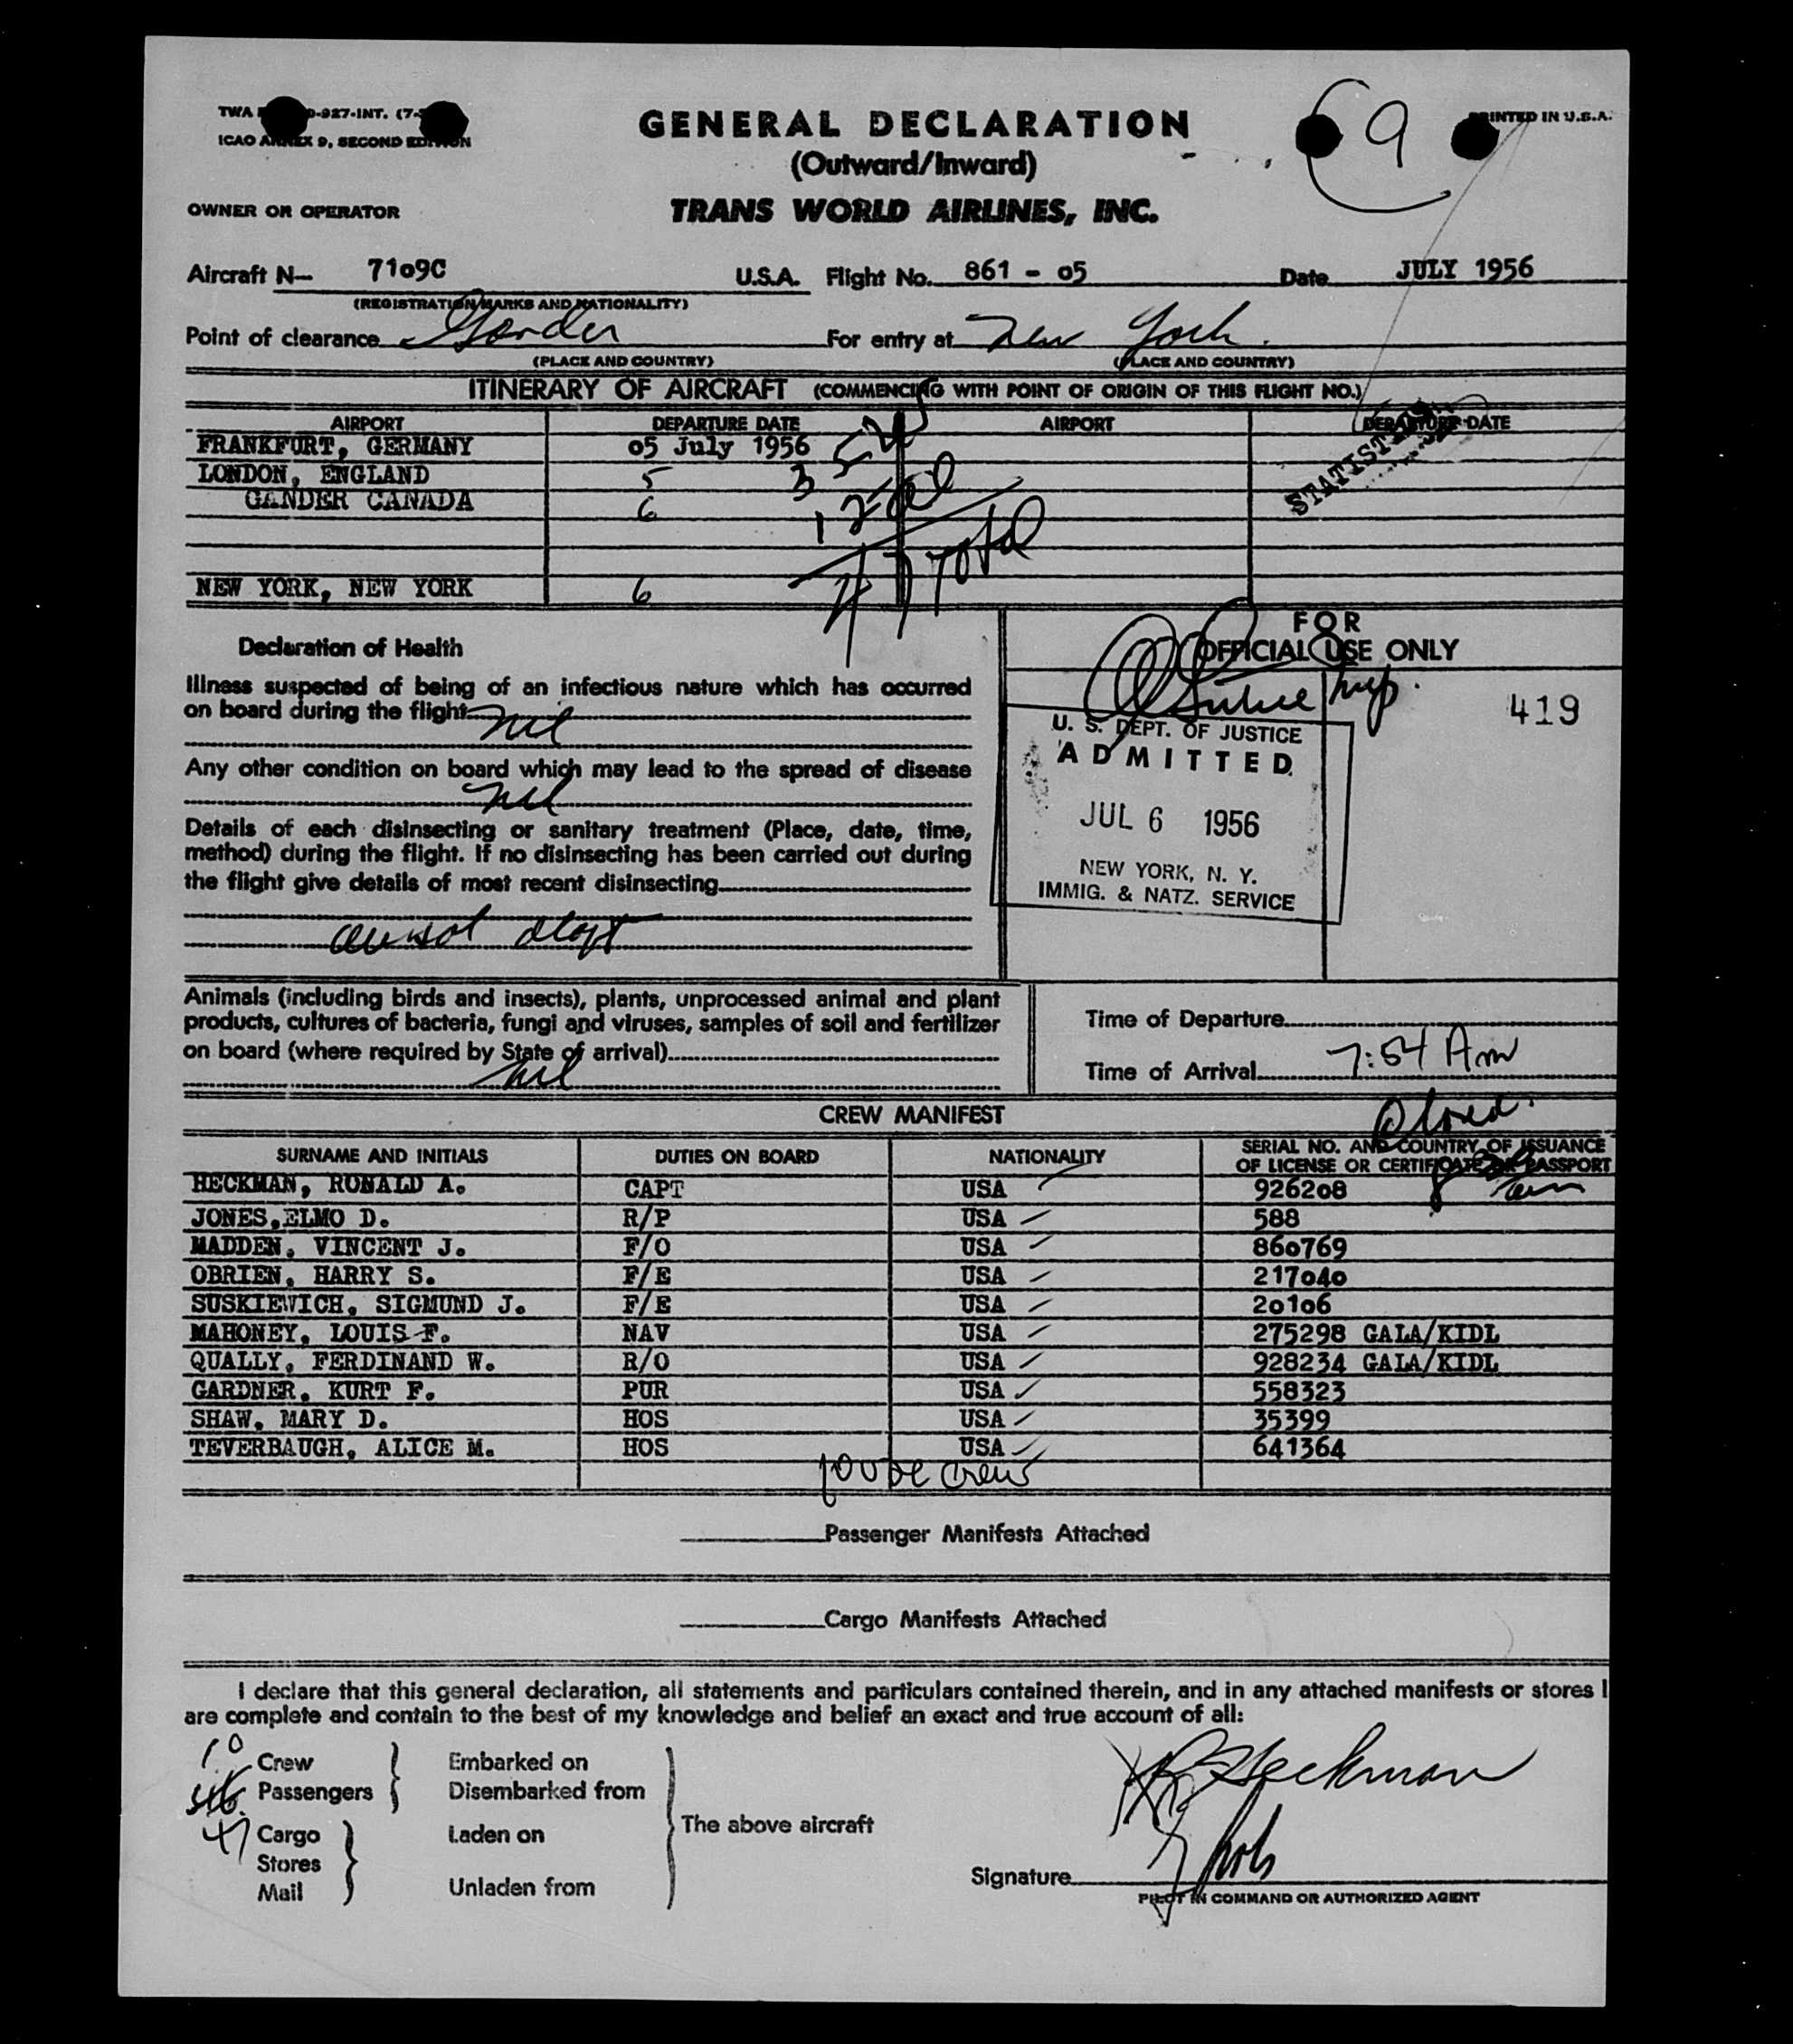 GENERAL DECLARATION
(Outward/Inward)
TRANS WORLD AIRLINES, INC.
TWA -927-INT. (7-
ICAO ANNEX 9, SECOND EDITION
9
PRINTED IN U.S.A.
OWNER OR OPERATOR
Aircraft N— 7109C U.S.A. Flight No. 861 - 05 Date JULY 1956
(REGISTRATION MARKS AND NATIONALITY)
Point of clearance Gander For entry at New York.
(PLACE AND COUNTRY) (PLACE AND COUNTRY)
ITINERARY OF AIRCRAFT (COMMENCING WITH POINT OF ORIGIN OF THIS FLIGHT NO.)
AIRPORT DEPARTURE DATE AIRPORT DEPARTURE DATE
FRANKFURT, GERMANY 05 July 1956
LONDON, ENGLAND 5
GANDER CANADA 6
47 Total
NEW YORK, NEW YORK 6
Declaration of Health
FOR
OFFICIAL USE ONLY
Illness suspected of being of an infectious nature which has occurred
on board during the flight nil
419
U. S. DEPT. OF JUSTICE
ADMITTED
JUL 6 1956
NEW YORK, N. Y.
IMMIG. & NATZ. SERVICE
Any other condition on board which may lead to the spread of disease
nil
Details of each disinsecting or sanitary treatment (Place, date, time,
method) during the flight. If no disinsecting has been carried out during
the flight give details of most recent disinsecting
Animals (including birds and insects), plants, unprocessed animal and plant
products, cultures of bacteria, fungi and viruses, samples of soil and fertilizer
on board (where required by State of arrival)
nil
Time of Departure
Time of Arrival 7:54 Am
CREW MANIFEST
SURNAME AND INITIALS DUTIES ON BOARD NATIONALITY SERIAL NO. AND COUNTRY OF ISSUANCE
OF LICENSE OR CERTIFICATE OR PASSPORT
HECKMAN, RONALD A. CAPT USA 926208
JONES,ELMO D. R/P USA 588
MADDEN, VINCENT J. F/O USA 860769
OBRIEN, HARRY S. F/E USA 217040
SUSKIEWICH, SIGMUND J. F/E USA 20106
MAHONEY, LOUIS F. NAV USA 275298 GALA/KIDL
QUALLY, FERDINAND W. R/O USA 928234 GALA/KIDL
GARDNER, KURT F. PUR USA 558323
SHAW, MARY D. HOS USA 35399
TEVERBAUGH, ALICE M. HOS USA 641364
crew
Passenger Manifests Attached
Cargo Manifests Attached
I declare that this general declaration, all statements and particulars contained therein, and in any attached manifests or stores l
are complete and contain to the best of my knowledge and belief an exact and true account of all:
10 Crew Embarked on
Passengers Disembarked from
The above aircraft
47 Cargo Laden on
Stores
Mail Unladen from
R Heckman
Signature
PILOT IN COMMAND OR AUTHORIZED AGENT